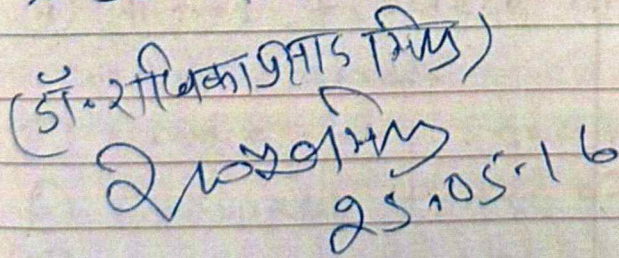 (डॉ. राधिका प्रसाद मिश्र)
25.05.16